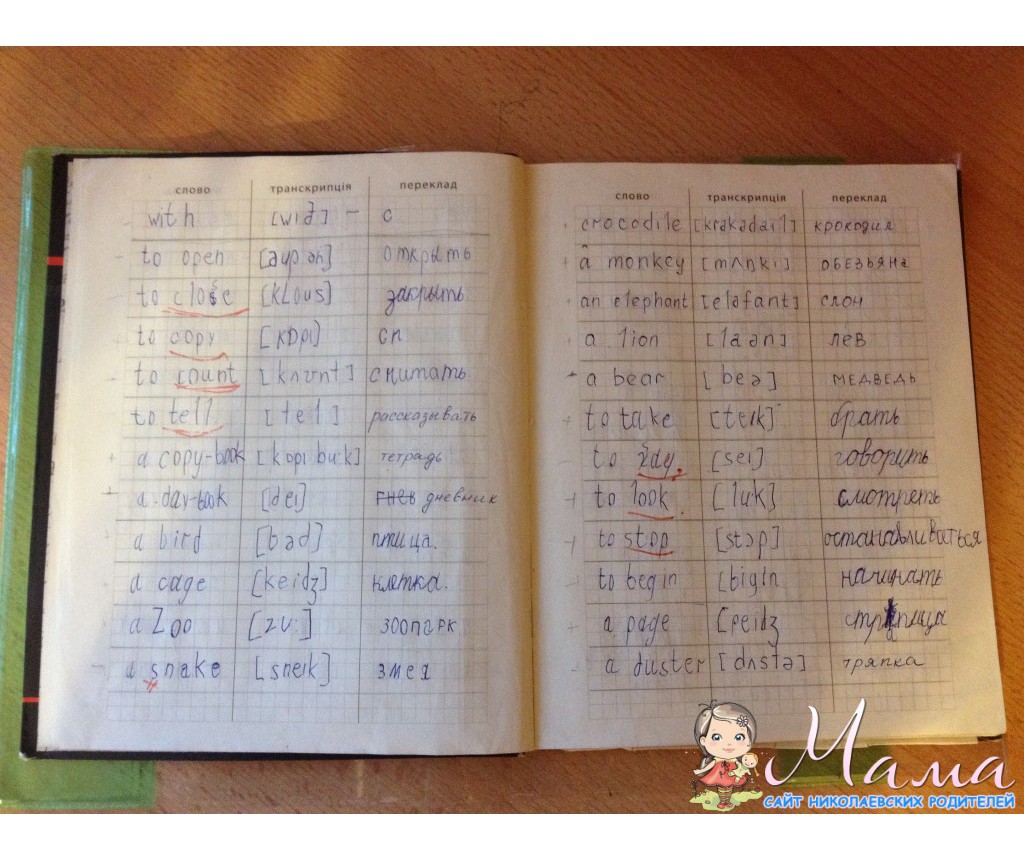 слово транскрипція переклад
with [wið] – с
to open [əupən] открыть
to close [klous] закрыть
to copy [kɒpi] сп
to count [kʌʊnt] считать
to tell [tel] рассказывать
a copy-book [kopi bu:k] тетрадь
a day-book [dei] гнев дневник
a bird [bəd] птица.
a cage [keidʒ] клетка.
a Zoo [zu:] зоопарк
a snake [sneik] змея
слово транскрипція переклад
crocodile [krəkədail] крокодил
a monkey [mʌŋki] обезьяна
an elephant [eləfant] слон
a lion [laən] лев
a bear [beə] медведь
to take [teik] брать
to say [sei] говорить
to look [luk] смотреть
to stop [stɔp] останавливаться
to begin [bigin начинать
a page [peidʒ страница
a duster [dʌstə] тряпка
Мама
САЙТ НИКОЛАЕВСКИХ РОДИТЕЛЕЙ